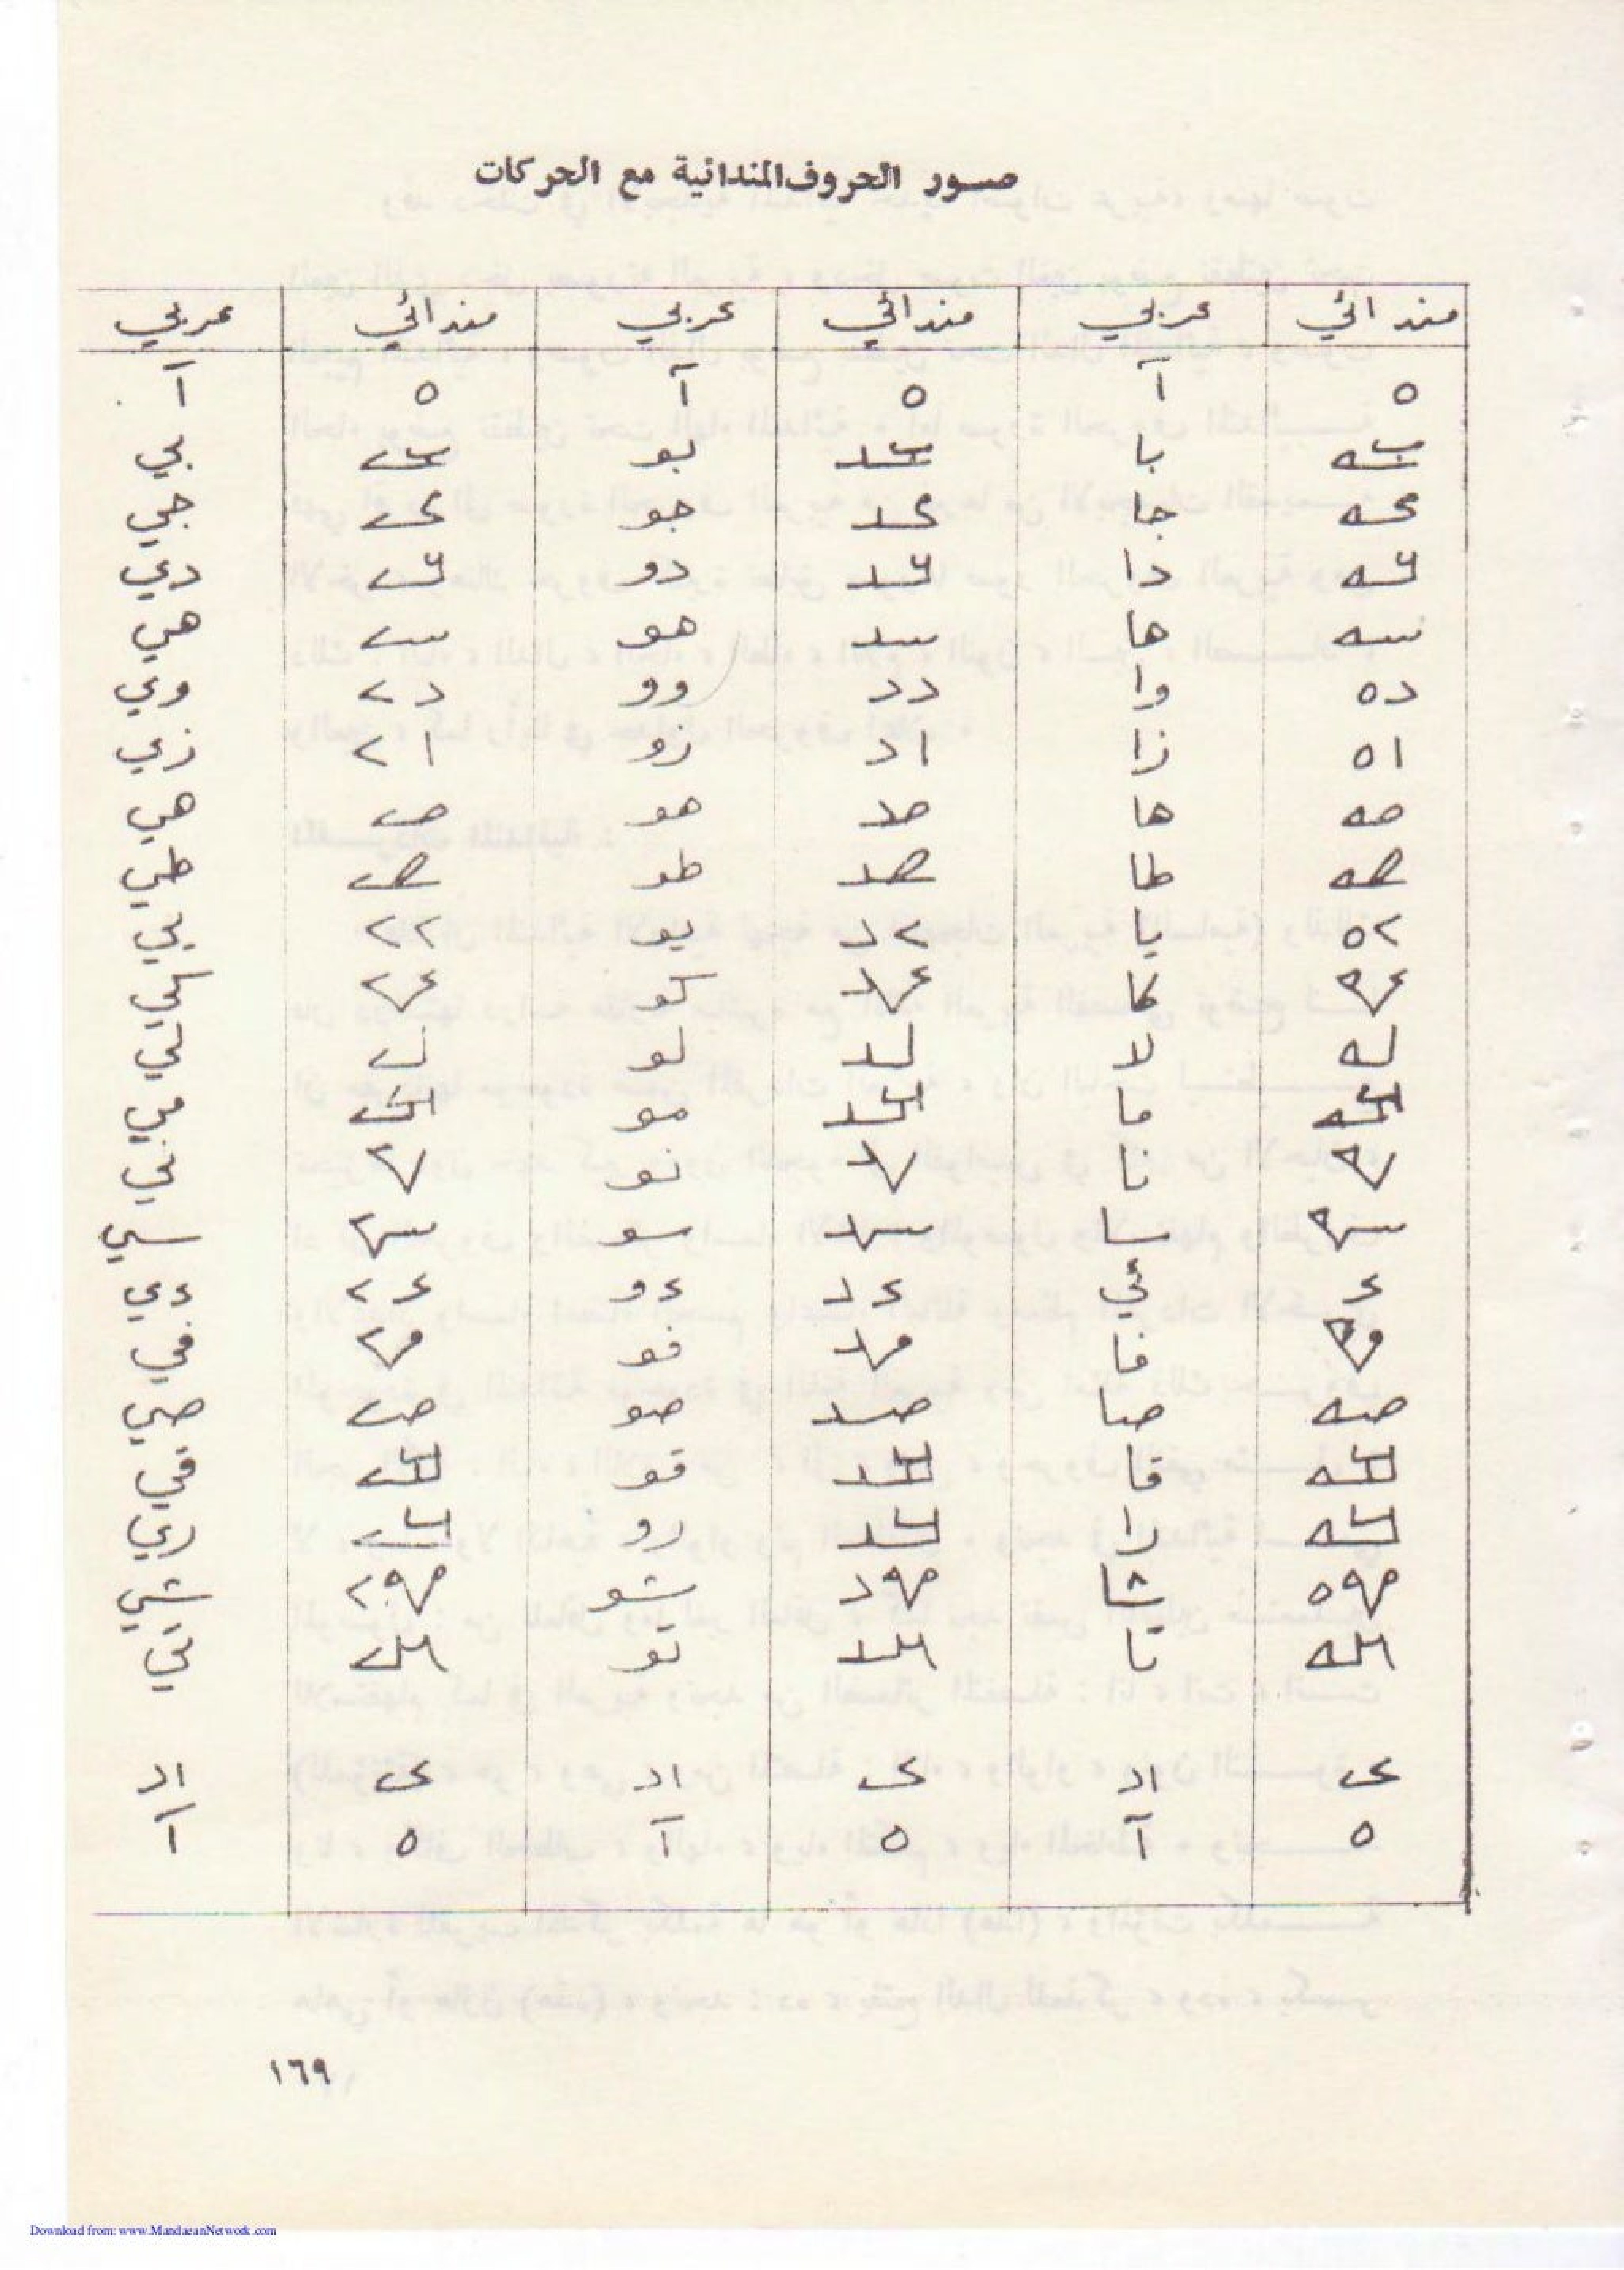 صور الحروف المندائية مع الحركات
مندائي عربي مندائي عربي مندائي عربي
ࡀ آ ࡀ آ ࡀ آ
ࡁࡀ با ࡁࡅ بو ࡁࡉ بي
ࡂࡀ جا ࡂࡅ جو ࡂࡉ جي
ࡃࡀ دا ࡃࡅ دو ࡃࡉ دي
ࡄࡀ ها ࡄࡅ هو ࡄࡉ هي
ࡅࡀ وا ࡅࡅ وو ࡅࡉ وي
ࡆࡀ زا ࡆࡅ زو ࡆࡉ زي
ࡇࡀ ها ࡇࡅ هو ࡇࡉ هي
ࡈࡀ طا ࡈࡅ طو ࡈࡉ طي
ࡉࡀ يا ࡉࡅ يو ࡉࡉ يي
ࡊࡀ كا ࡊࡅ كو ࡊࡉ كي
ࡋࡀ لا ࡋࡅ لو ࡋࡉ لي
ࡌࡀ ما ࡌࡅ مو ࡌࡉ مي
ࡍࡀ نا ࡍࡅ نو ࡍࡉ ني
ࡎࡀ سا ࡎࡅ سو ࡎࡉ سي
ࡏ ئي ࡏࡅ ءو ࡏࡉ ءي
ࡐࡀ فا ࡐࡅ فو ࡐࡉ في
ࡑࡀ صا ࡑࡅ صو ࡑࡉ صي
ࡒࡀ قا ࡒࡅ قو ࡒࡉ قي
ࡓࡀ را ࡓࡅ رو ࡓࡉ ري
ࡔࡀ شا ࡔࡅ شو ࡔࡉ شي
ࡕࡀ تا ࡕࡅ تو ࡕࡉ تي
ࡖ اد ࡖ اد ࡖ اد
ࡀ آ ࡀ آ ࡀ آ
١٦٩
Download from: www.MandaeanNetwork.com